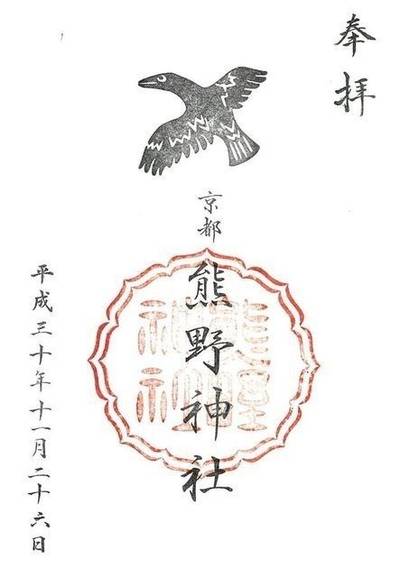 奉拝
京都
熊野神社
熊野
神社
平成三十年十一月二十六日